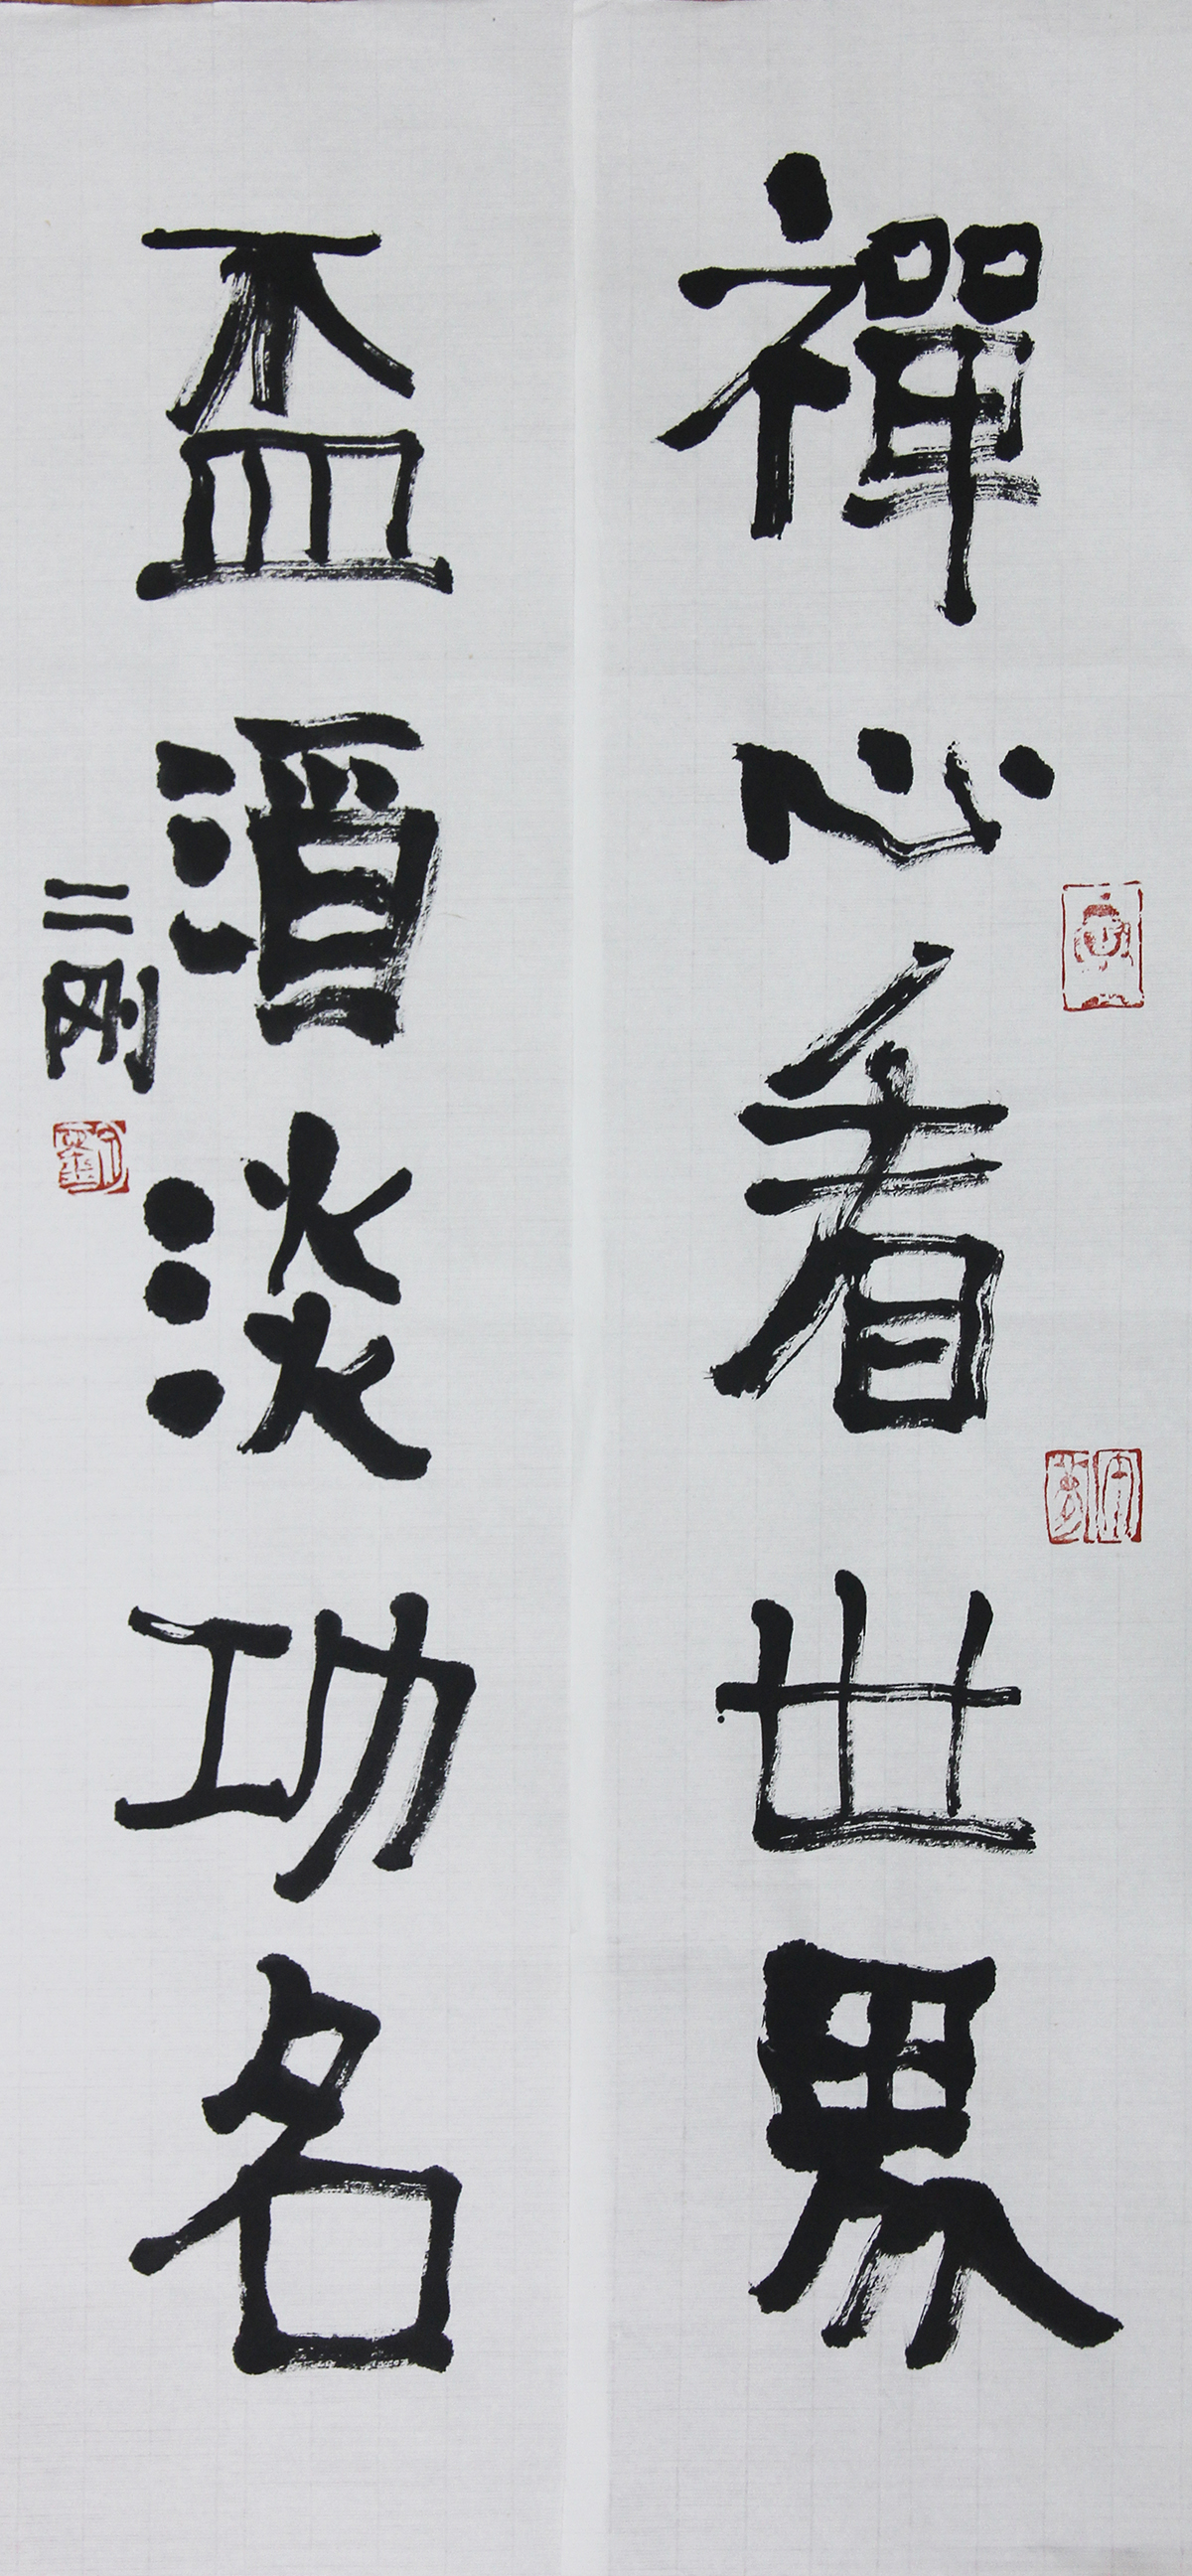 禪心看世界
盃酒淡功名
二剛